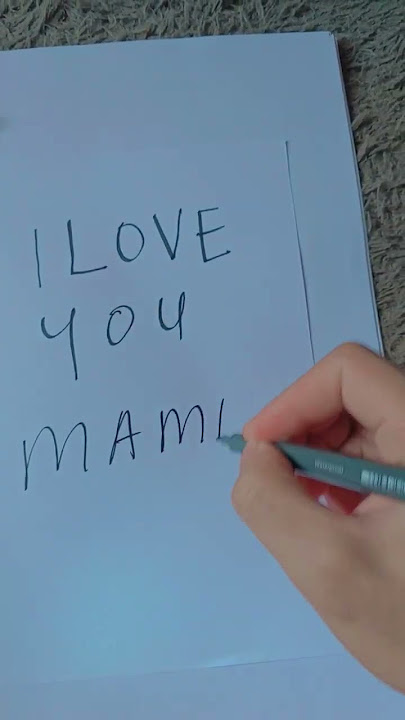 I LOVE
YOU
MAMI